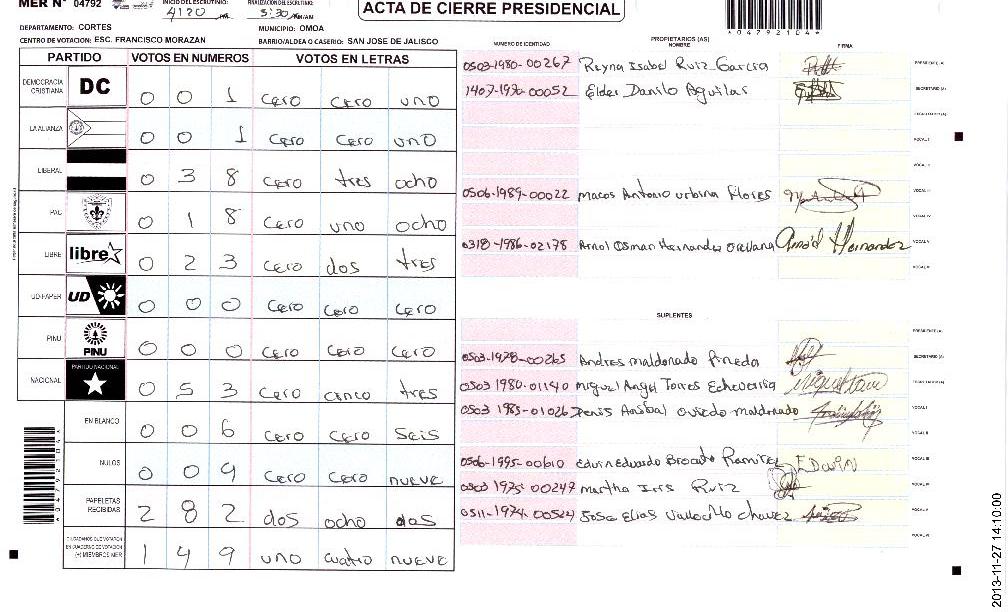 MER N° 04792
INICIO DEL ESCRUTINIO: 4:20 PM
FINALIZACION DEL ESCRUTINIO: 5:30 AM/AM
ACTA DE CIERRE PRESIDENCIAL
*04792104*
DEPARTAMENTO: CORTES
MUNICIPIO: OMOA
CENTRO DE VOTACION: ESC. FRANCISCO MORAZAN
BARRIO/ALDEA O CASERIO: SAN JOSE DE JALISCO
PARTIDO VOTOS EN NUMEROS VOTOS EN LETRAS
DEMOCRACIA CRISTIANA DC 0 0 1 cero cero uno
LA ALIANZA 0 0 1 cero cero uno
LIBERAL 0 3 8 cero tres ocho
PAC 0 1 8 cero uno ocho
LIBRE libre 0 2 3 cero dos tres
UD-FAPER UD 0 0 0 cero cero cero
PINU PINU 0 0 0 cero cero cero
NACIONAL PARTIDO NACIONAL 0 5 3 cero cinco tres
EN BLANCO 0 0 6 cero cero seis
NULOS 0 0 9 cero cero nueve
PAPELETAS RECIBIDAS 2 8 2 dos ocho dos
CIUDADANOS QUE VOTARON EN CUADERNO DE VOTACION (+) MIEMBROS MER 1 4 9 uno cuatro nueve
NUMERO DE IDENTIDAD PROPIETARIOS (AS) NOMBRE FIRMA
0503-1980-00267 Reyna Isabel Ruiz Garcia PRESIDENTE(A)
1407-1990-00052 Elder Danilo Aguilar SECRETARIO (A)
ESCRUTADOR (A)
VOCAL I
VOCAL II
0506-1989-00022 Macos Antonio urbina Flores VOCAL III
VOCAL IV
0318-1986-02178 Arnol Osman Hernandez Orellana Arnold Hernandez VOCAL V
VOCAL VI
SUPLENTES
PRESIDENTE(A)
0503-1978-00265 Andres maldonado Pineda SECRETARIO (A)
0503 1980-01140 Miguel Angel Torres Echeverria ESCRUTADOR (A)
0503 1985-01026 Denis Anibal oviedo maldonado VOCAL I
VOCAL II
0506-1995-00610 Edwin Eduardo Brocato Ramirez Edwin VOCAL III
0503 1975-00247 martha Iris Ruiz VOCAL IV
0511-1974-00524 Jose Elias Vallecillo chavez VOCAL V
VOCAL VI
*04792104*
2013-11-27 14:10:00